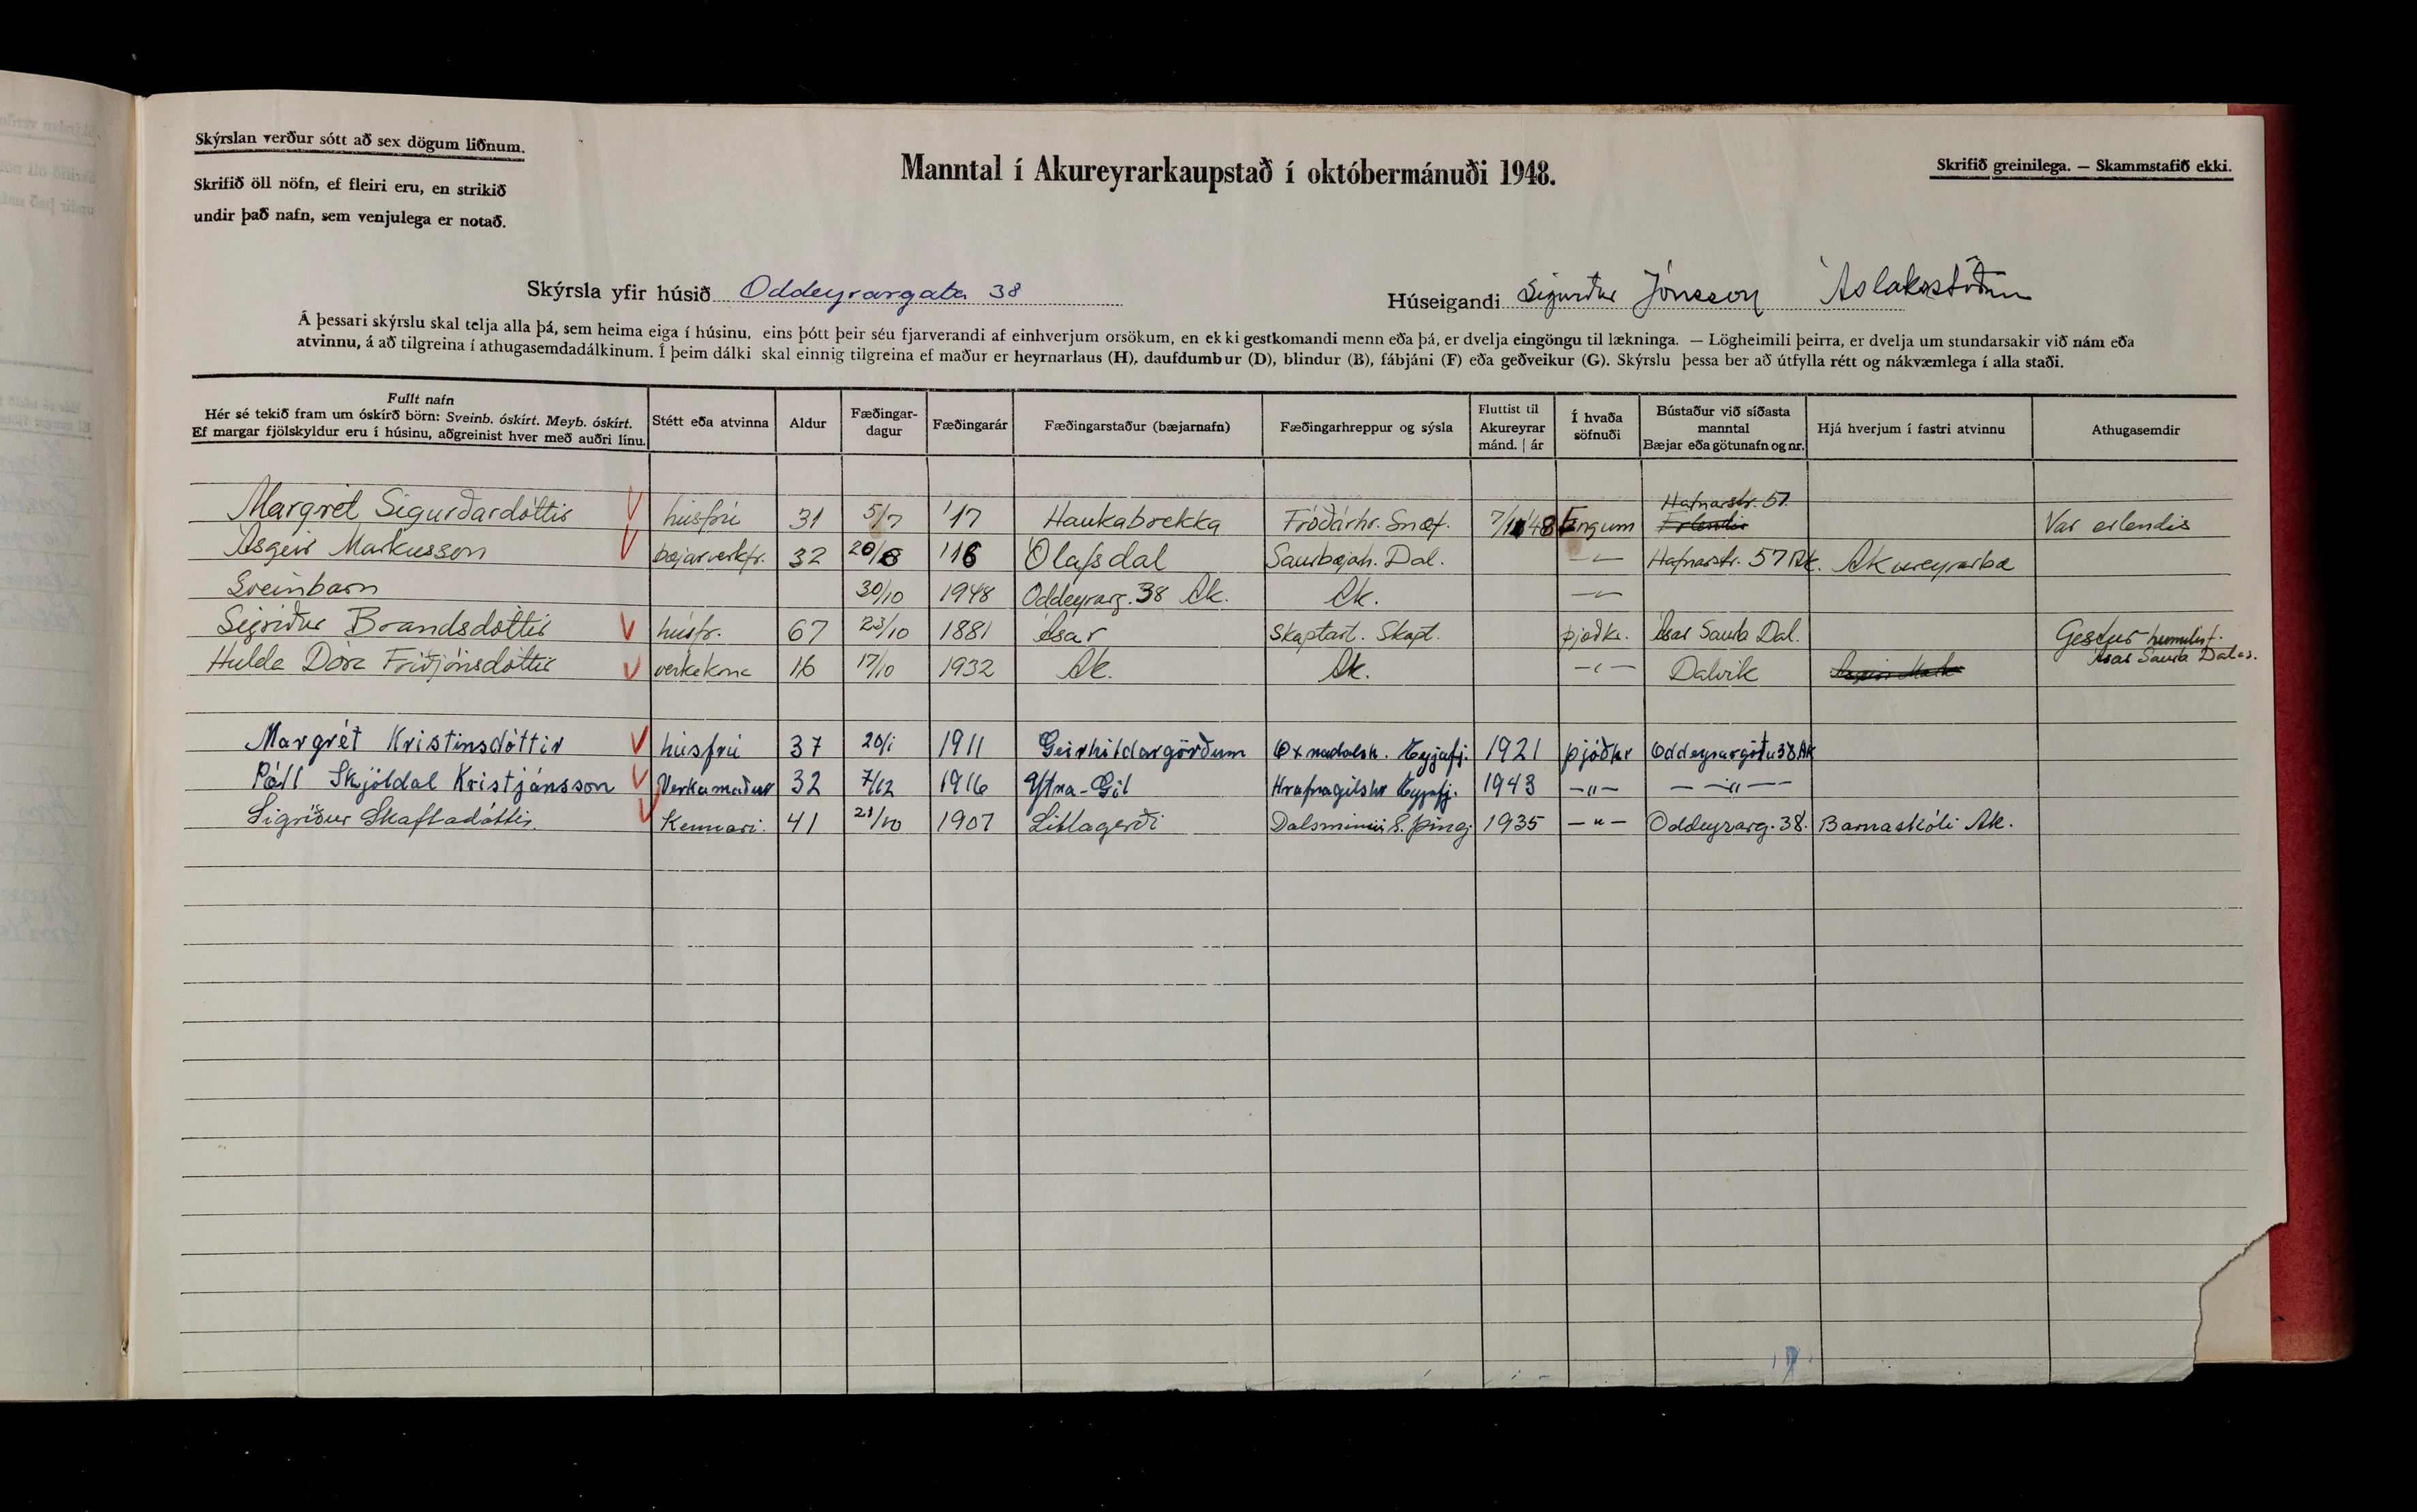 Skýrslan verður sótt að sex dögum liðnum.
Skrifið öll nöfn, ef fleiri eru, en strikið
undir það nafn, sem venjulega er notað.
Manntal í Akureyrarkaupstað í októbermánuði 1948.
Skrifið greinilega. — Skammstafið ekki.
Skýrsla yfir húsið Oddeyrargata 38
Húseigandi Sigurður Jónsson Áslaksstöðum
Á þessari skýrslu skal telja alla þá, sem heima eiga í húsinu, eins þótt þeir séu fjarverandi af einhverjum orsökum, en ekki gestkomandi menn eða þá, er dvelja eingöngu til lækninga. — Lögheimili þeirra, er dvelja um stundarsakir við nám eða
atvinnu, á að tilgreina í athugasemdadálkinum. Í þeim dálki skal einnig tilgreina ef maður er heyrnarlaus (H), daufdumbur (D), blindur (B), fábjáni (F) eða geðveikur (G). Skýrslu þessa ber að útfylla rétt og nákvæmlega í alla staði.
Fullt nafn
Hér sé tekið fram um óskírð börn: Sveinb. óskírt. Meyb. óskírt.
Ef margar fjölskyldur eru í húsinu, aðgreinist hver með auðri línu.
Stétt eða atvinna
Aldur
Fæðingar-
dagur
Fæðingarár
Fæðingarstaður (bæjarnafn)
Fæðingarhreppur og sýsla
Fluttist til
Akureyrar
mánd. | ár
Í hvaða
söfnuði
Bústaður við síðasta
manntal
Bæjar eða götunafn og nr.
Hjá hverjum í fastri atvinnu
Athugasemdir
Hafnarstr. 57.
Margrét Sigurðardóttir húsfrú 31 5/7 '17 Haukabrekka Fróðárhr. Snæf. 7/10 '48 Engum Erlendis Var erlendis
Ásgeir Markússon bæjarverkfr. 32 20/8 '16 Ólafsdal Saurbæjarh. Dal. —〃— Hafnarstr. 57 Ak. Akureyrarbæ
Sveinbarn 30/10 1948 Oddeyrarg. 38 Ak. Ak. —〃—
Sigríður Brandsdóttir húsfr. 67 23/10 1881 Ásar Skaptárt. Skapt. þjóðk. Ásar Saurb Dal. Gestur
Hulda Dóra Friðjónsdóttir verkakona 16 17/10 1932 Ak. Ak. —〃— Dalvík Ásar Saurb Dalas.
Margrét Kristinsdóttir húsfrú 37 20/1 1911 Geirhildargörðum Öxnadalsh. Eyjafj. 1921 þjóðkr Oddeyrargötu 38 Ak
Páll Skjöldal Kristjánsson Verkamaður 32 7/12 1916 Ytra-Gil Hrafnagilshr Eyjafj. 1943 —〃— —〃—
Sigríður Skaftadóttir. Kennari. 41 21/10 1907 Litlagerði Dalsmynni S. Þing 1935 —〃— Oddeyrarg. 38. Barnaskóli Ak.